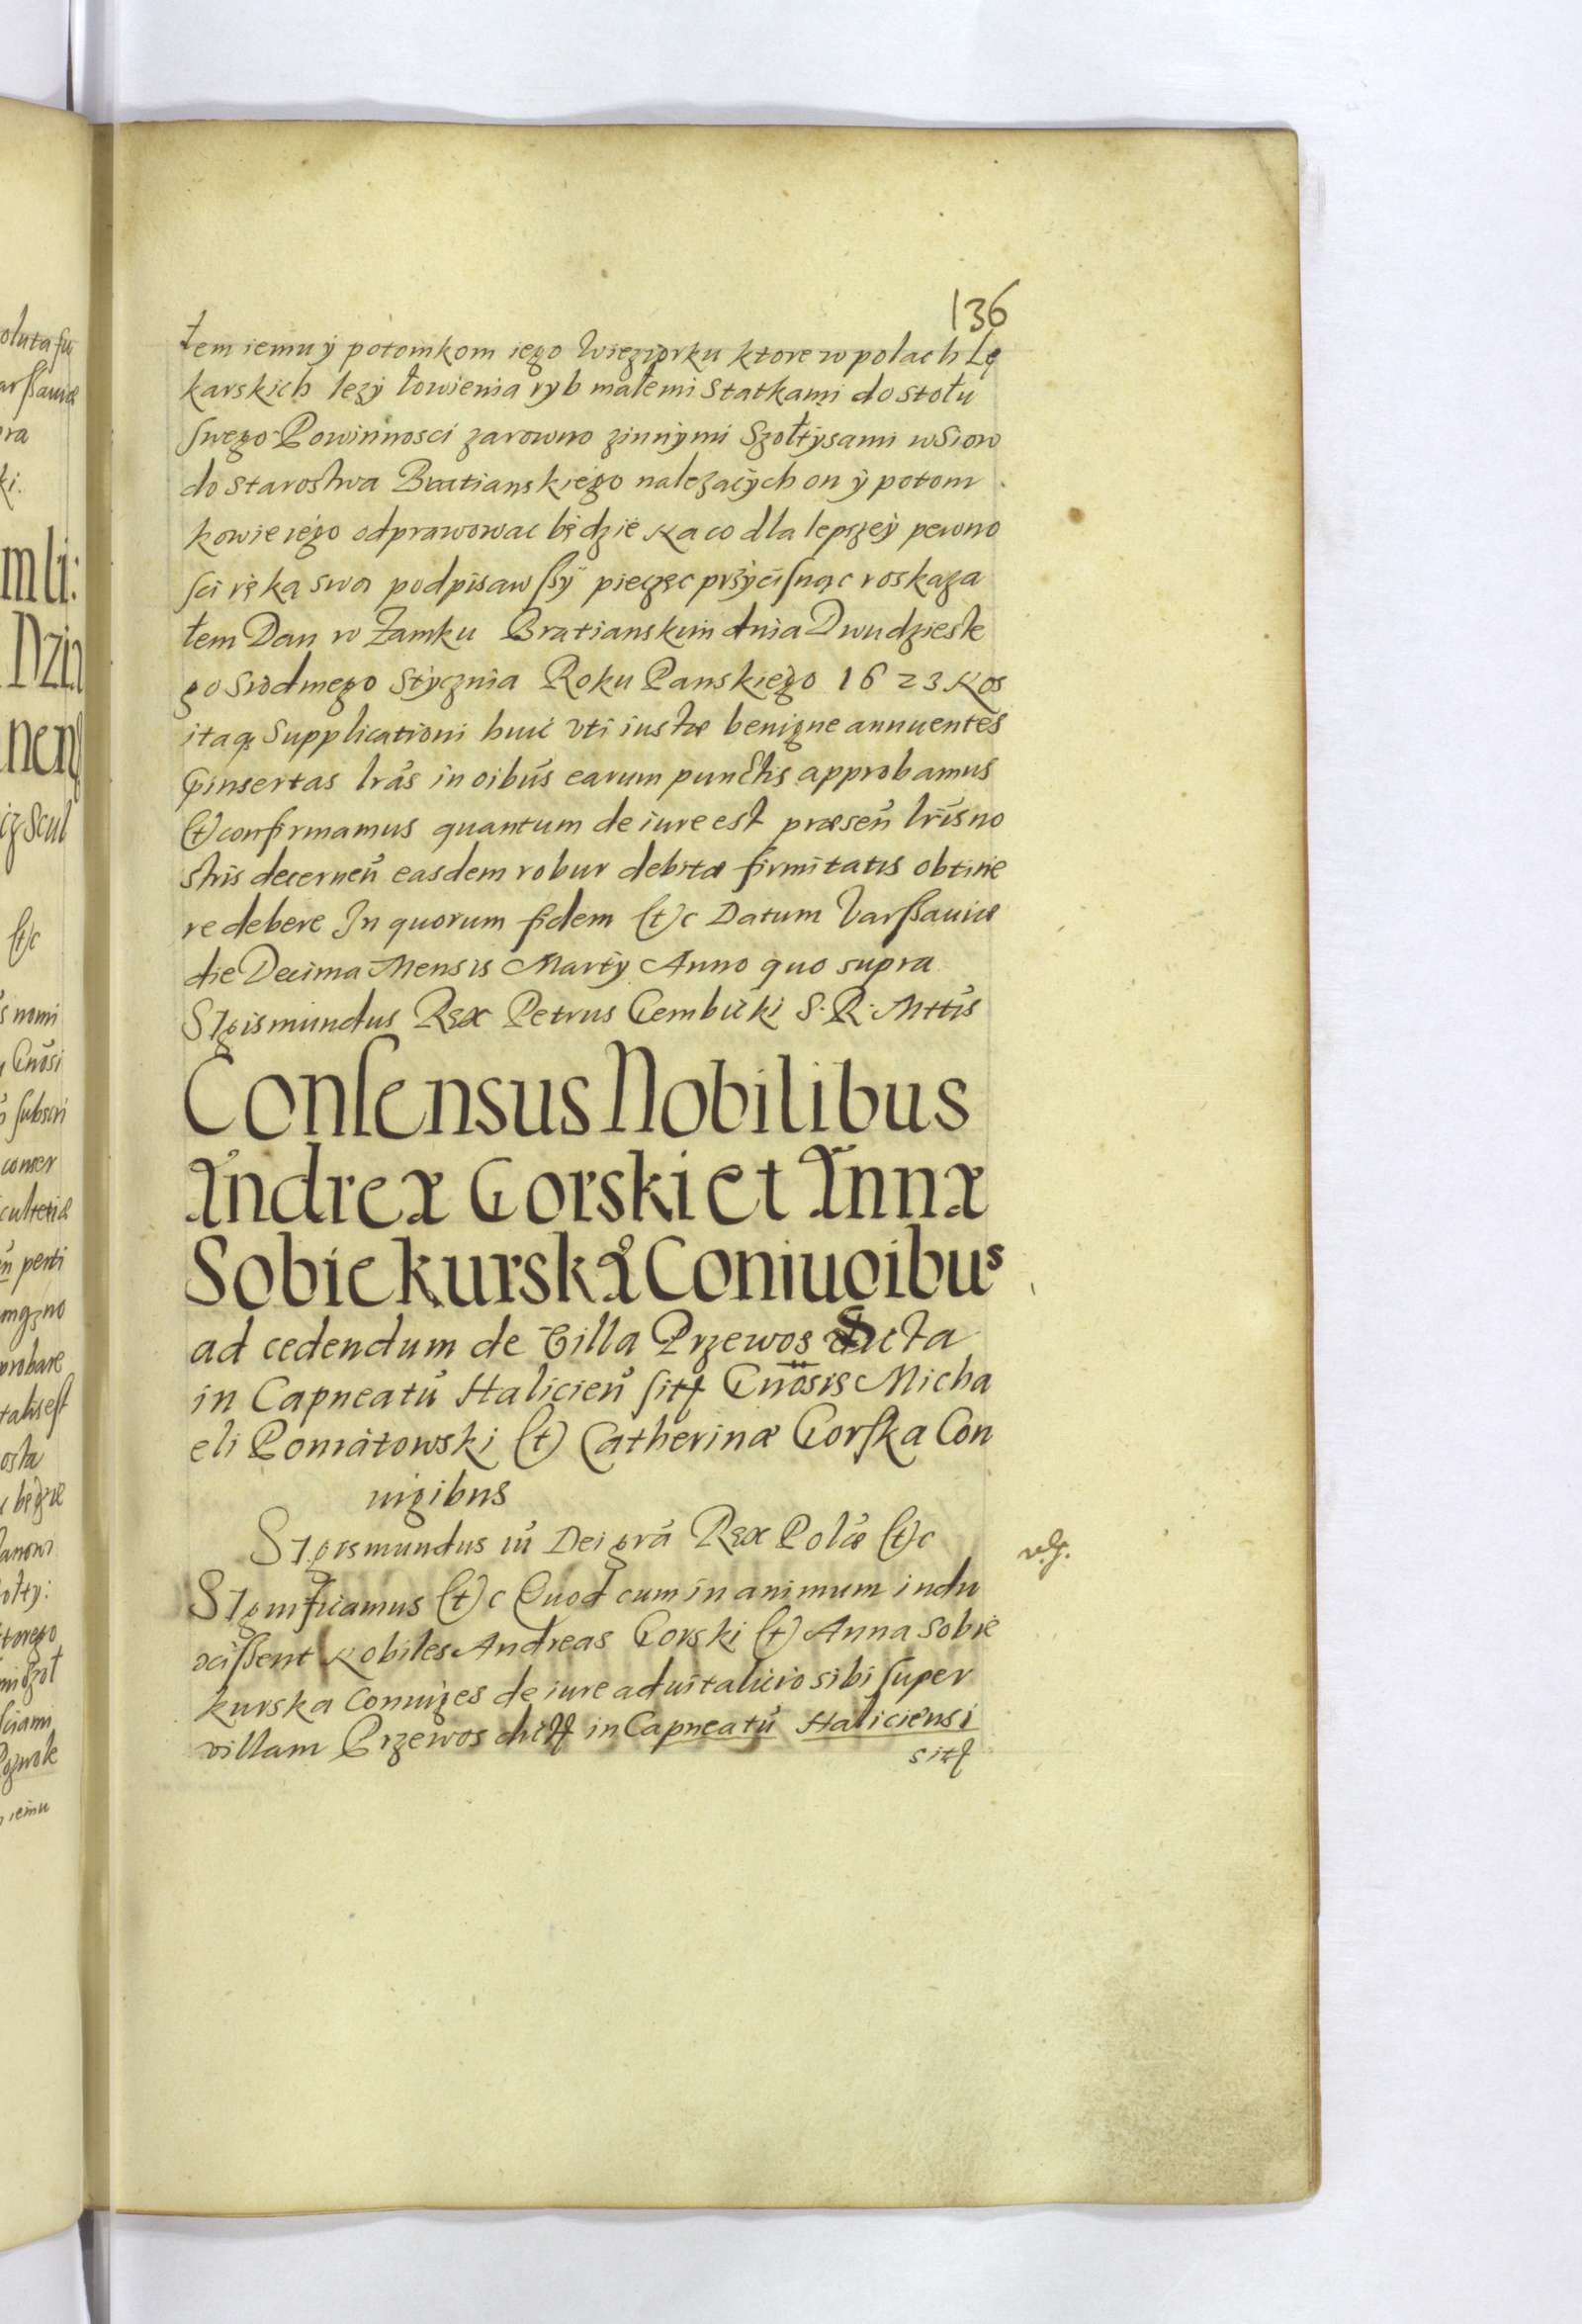 136
łem iemu ÿ potomkom iego Wieziorku ktore w polach Lę
karskich lezÿ łowienia ryb małemi Statkami do stołu
swego Powinnosci zarowno zinnÿmi Szołtÿsami wSiow
do starostwa Bratianskiego nalezacÿch on ÿ potom
kowie iego odprawowac będzie Na co dla lepszeÿ pewno
sci ręka swa podpisawßÿ pieczęc przÿcisnąc roskaza
łem Dan w Zamku Bratianskim dnia Dwudzieste
go Siodmego Stÿcznia Roku Panskiego 1623 Nos
itaq Supplicationi huic vti iustæ benigne annuentes
pinsertas lrãs in oibus earum punctis approbamus
(et) confirmamus quantum de iure est præsen lris no
stris decernen easdem robur debitæ firmitatis obtine
re debere In quorum fidem (et)c Datum Varßauiæ
die Decima Mensis Martÿ Anno quo supra
Sigismundus Rex Petrus Gembicki S. R. Mttis
Consensus Nobilibus
Andreæ Gorski et Annæ
Sobiekurska Coniugibus
ad cedendum de Villa Przewos dicta
in Capneatu Halicien sit Gnosis Micha
eli Poniatowski (et) Catherinæ Gorska Con
iugibus
Sigismundus iii Dei gra Rex Polæ (et)c
Significamus (et)c Quod cum in animum indu
xißent Nobiles Andreas Gorski (et) Anna Sobie
kurska Coniuges de iure aduitalicio sibi super
villam Przewos dict in Capneatu Haliciensi
sit